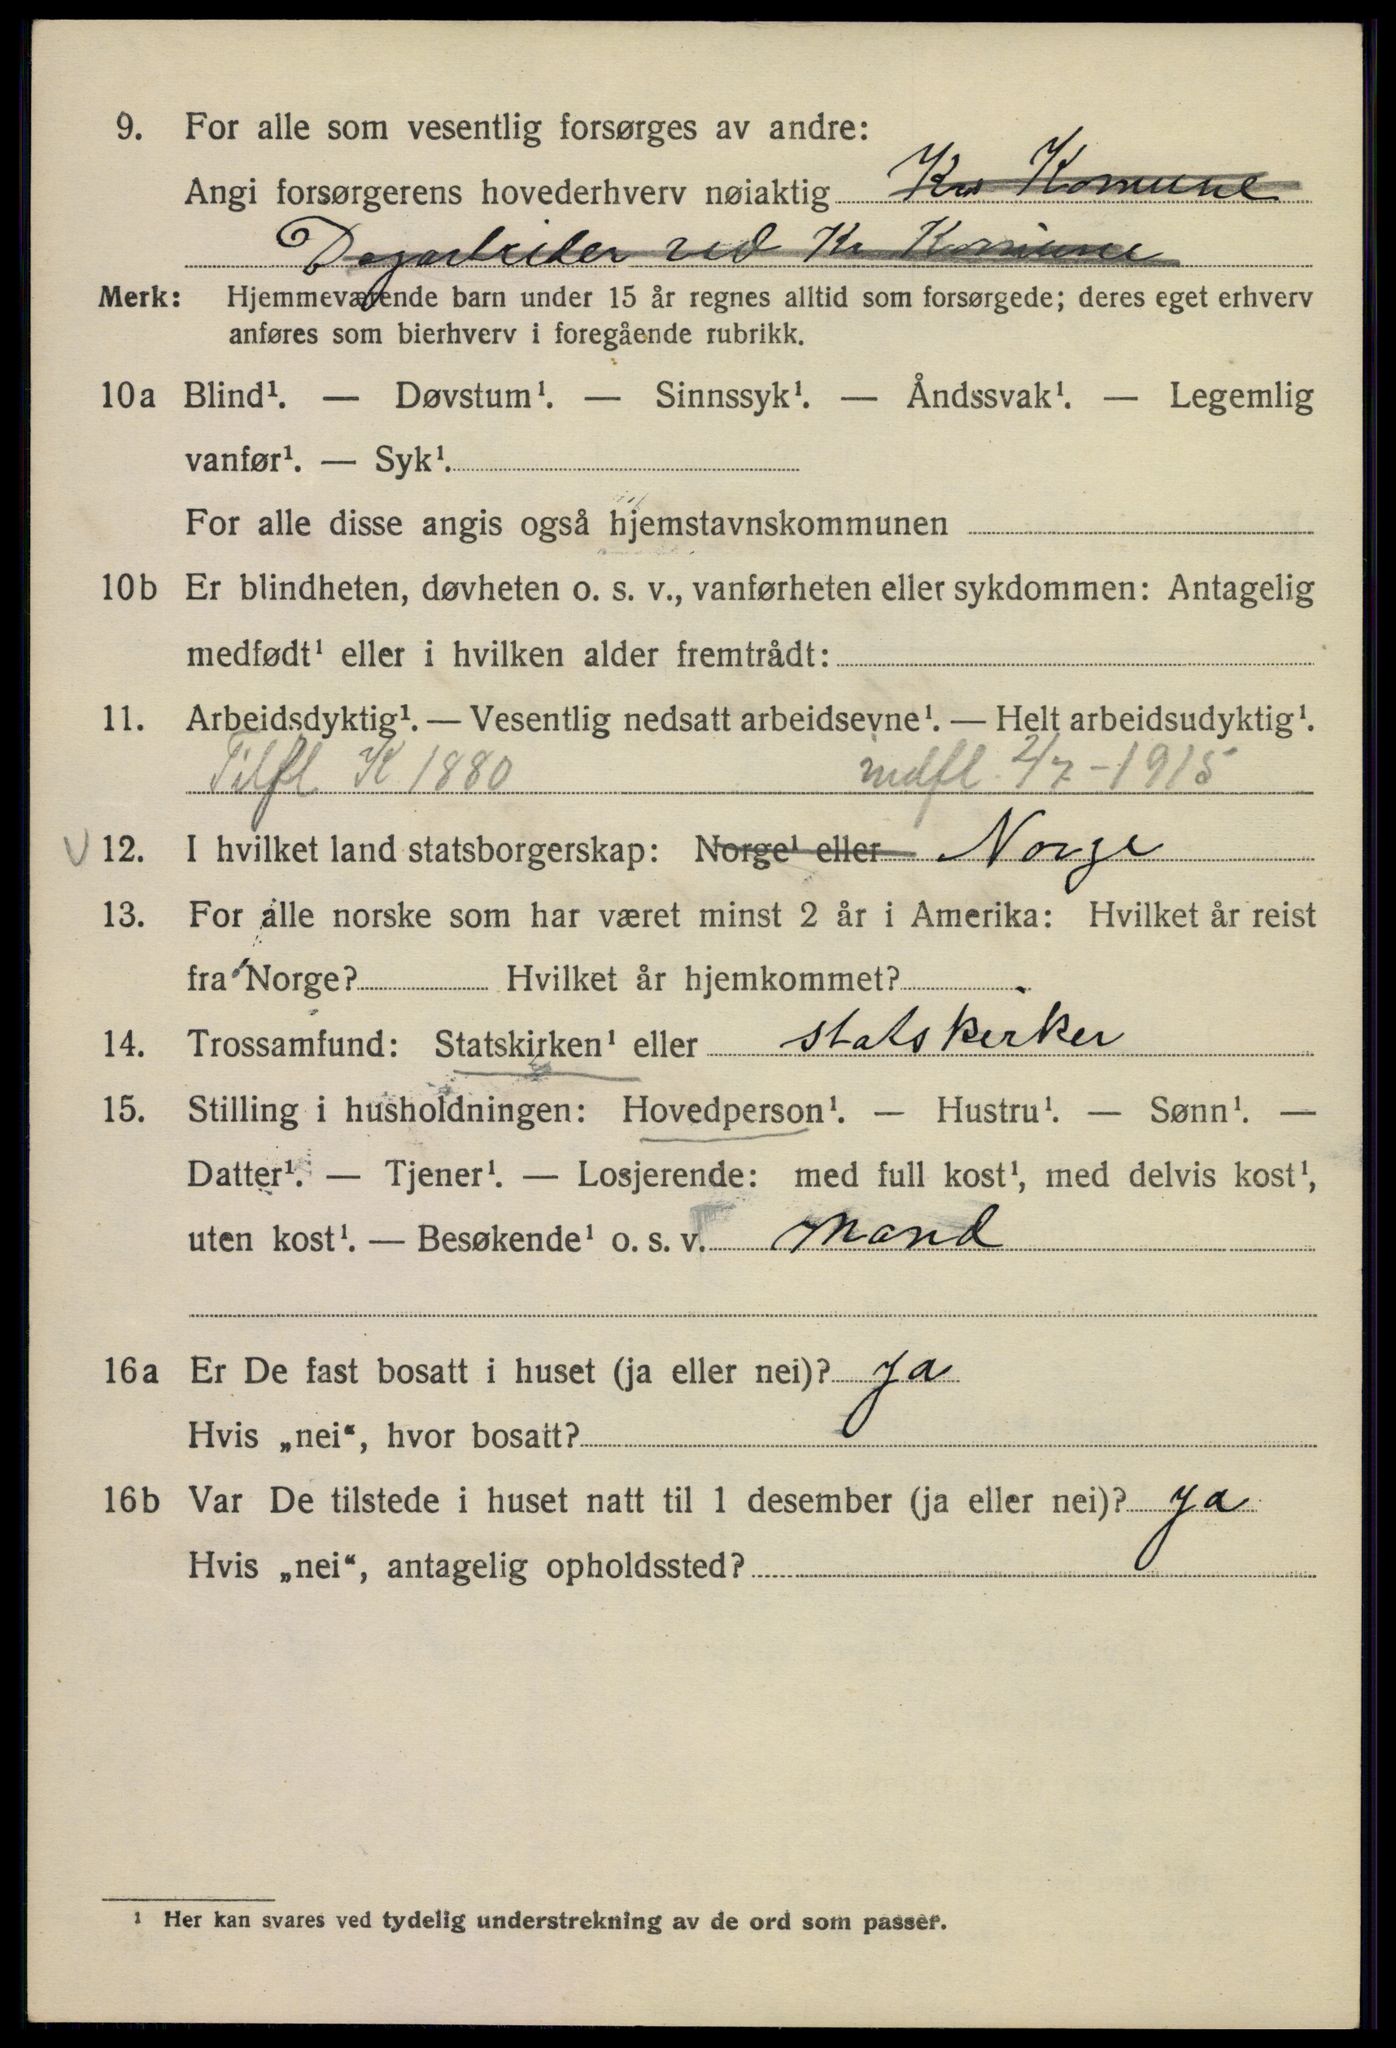 9. For alle som vesentlig forsørges av andre:
Angi forsørgerens hovederhverv nøiaktig Kra Komune
Dagarbeider ved Kr Komune
Merk: Hjemmeværende barn under 15 år regnes alltid som forsørgede; deres eget erhverv
anføres som bierhverv i foregående rubrikk.
10a Blind¹. — Døvstum¹. — Sinnssyk¹. — Åndssvak¹. — Legemlig
vanfør¹. — Syk¹.
For alle disse angis også hjemstavnskommunen
10b Er blindheten, døvheten o. s. v., vanførheten eller sykdommen: Antagelig
medfødt¹ eller i hvilken alder fremtrådt:
11. Arbeidsdyktig¹. — Vesentlig nedsatt arbeidsevne¹. — Helt arbeidsudyktig¹.
Tilfl. K 1880 indfl. 2/7-1915
V 12. I hvilket land statsborgerskap: Norge¹ eller Norge
13. For alle norske som har været minst 2 år i Amerika: Hvilket år reist
fra Norge? Hvilket år hjemkommet?
14. Trossamfund: Statskirken¹ eller statskirken
15. Stilling i husholdningen: Hovedperson¹. — Hustru¹. — Sønn¹. —
Datter¹. — Tjener¹. — Losjerende: med full kost¹, med delvis kost¹,
uten kost¹. — Besøkende¹ o. s. v. Mand
16a Er De fast bosatt i huset (ja eller nei)? ja
Hvis „nei“, hvor bosatt?
16b Var De tilstede i huset natt til 1 desember (ja eller nei)? ja
Hvis „nei“, antagelig opholdssted?
¹ Her kan svares ved tydelig understrekning av de ord som passer.